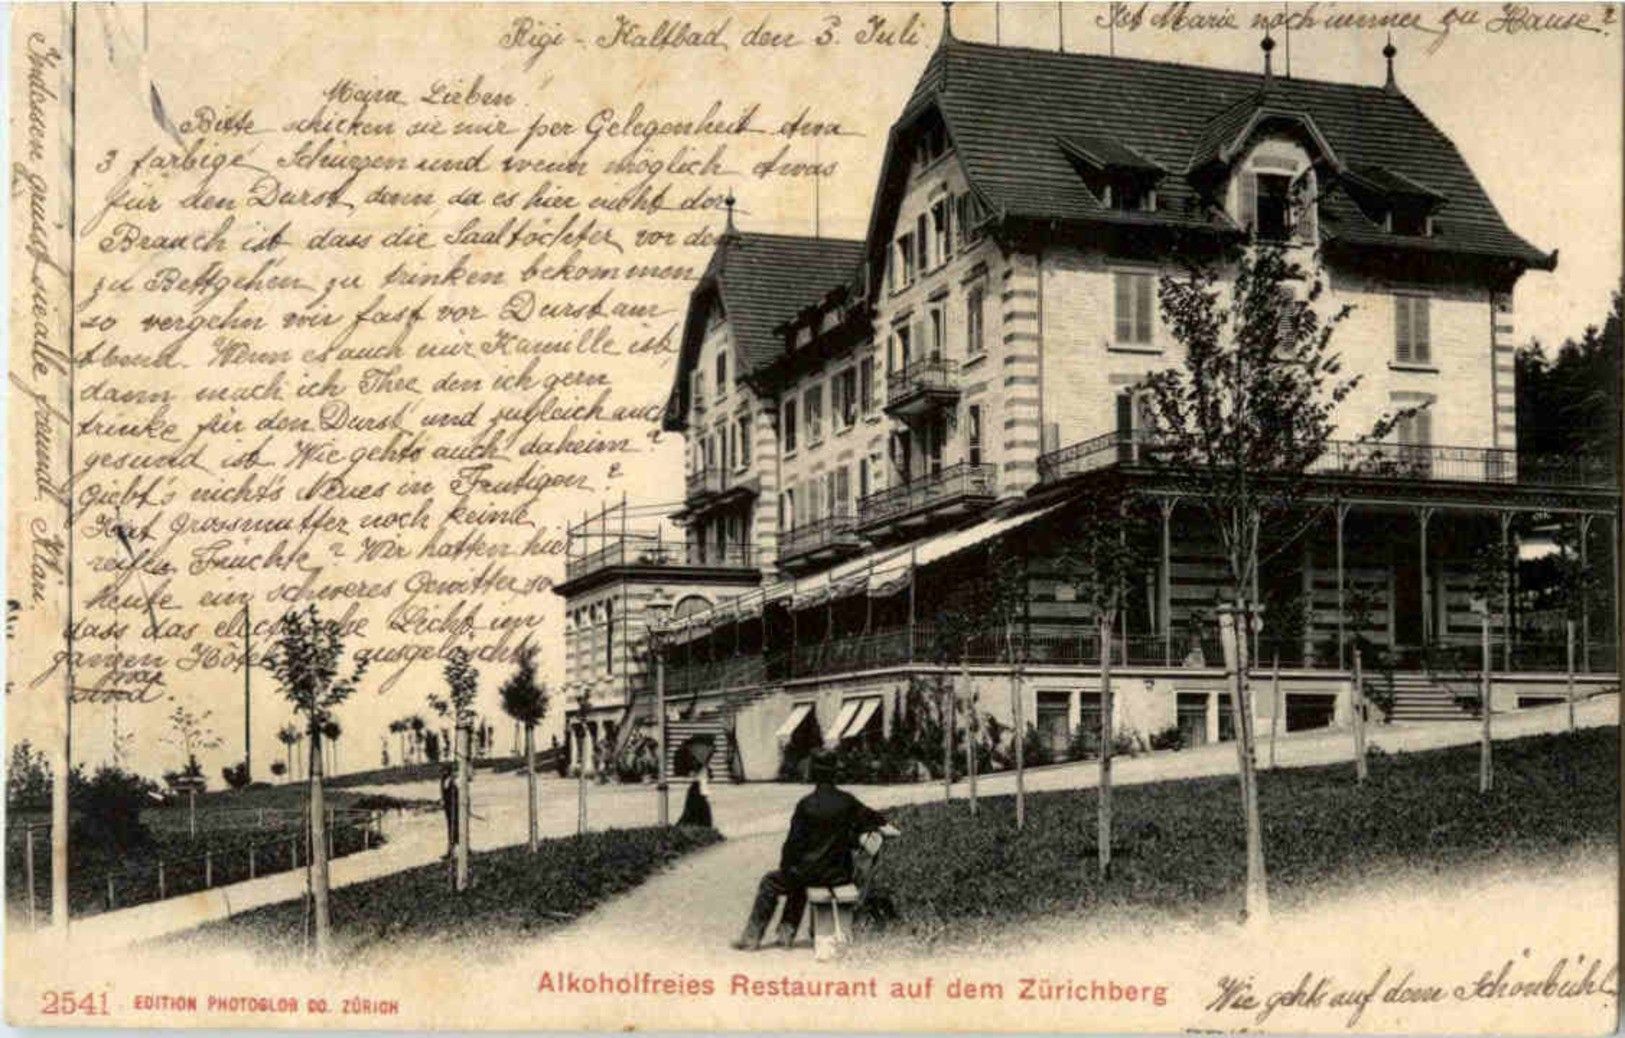 Rigi-Kaltbad, den 3. Juli.
Ist Marie noch immer zu Hause?
Meine Lieben!
Bitte schicken sie mir per Gelegenheit etwa
3 farbige Schürzen und wenn möglich etwas
für den Durst, denn da es hier nicht der
Brauch ist dass die Saaltöchter vor dem
zu Bettgehen zu trinken bekommen
so vergehn wir fast vor Durst am
Abend. Wenn es auch nur Kamille ist,
dann mach ich Thee den ich gern
trinke für den Durst und zugleich auch
gesund ist. Wie gehts auch daheim?
Giebt's nichts Neues in Frutigen?
Hat Grossmutter noch keine
reifen Früchte? Wir hatten hier
heute ein schweres Gewitter so
dass das electrische Licht im
ganzen Hôtel ausgelöscht
war.
grüsst sie alle freundl.
Wie gehts auf dem Schönbühl
Alkoholfreies Restaurant auf dem Zürichberg
2541 EDITION PHOTOGLOB CO. ZÜRICH